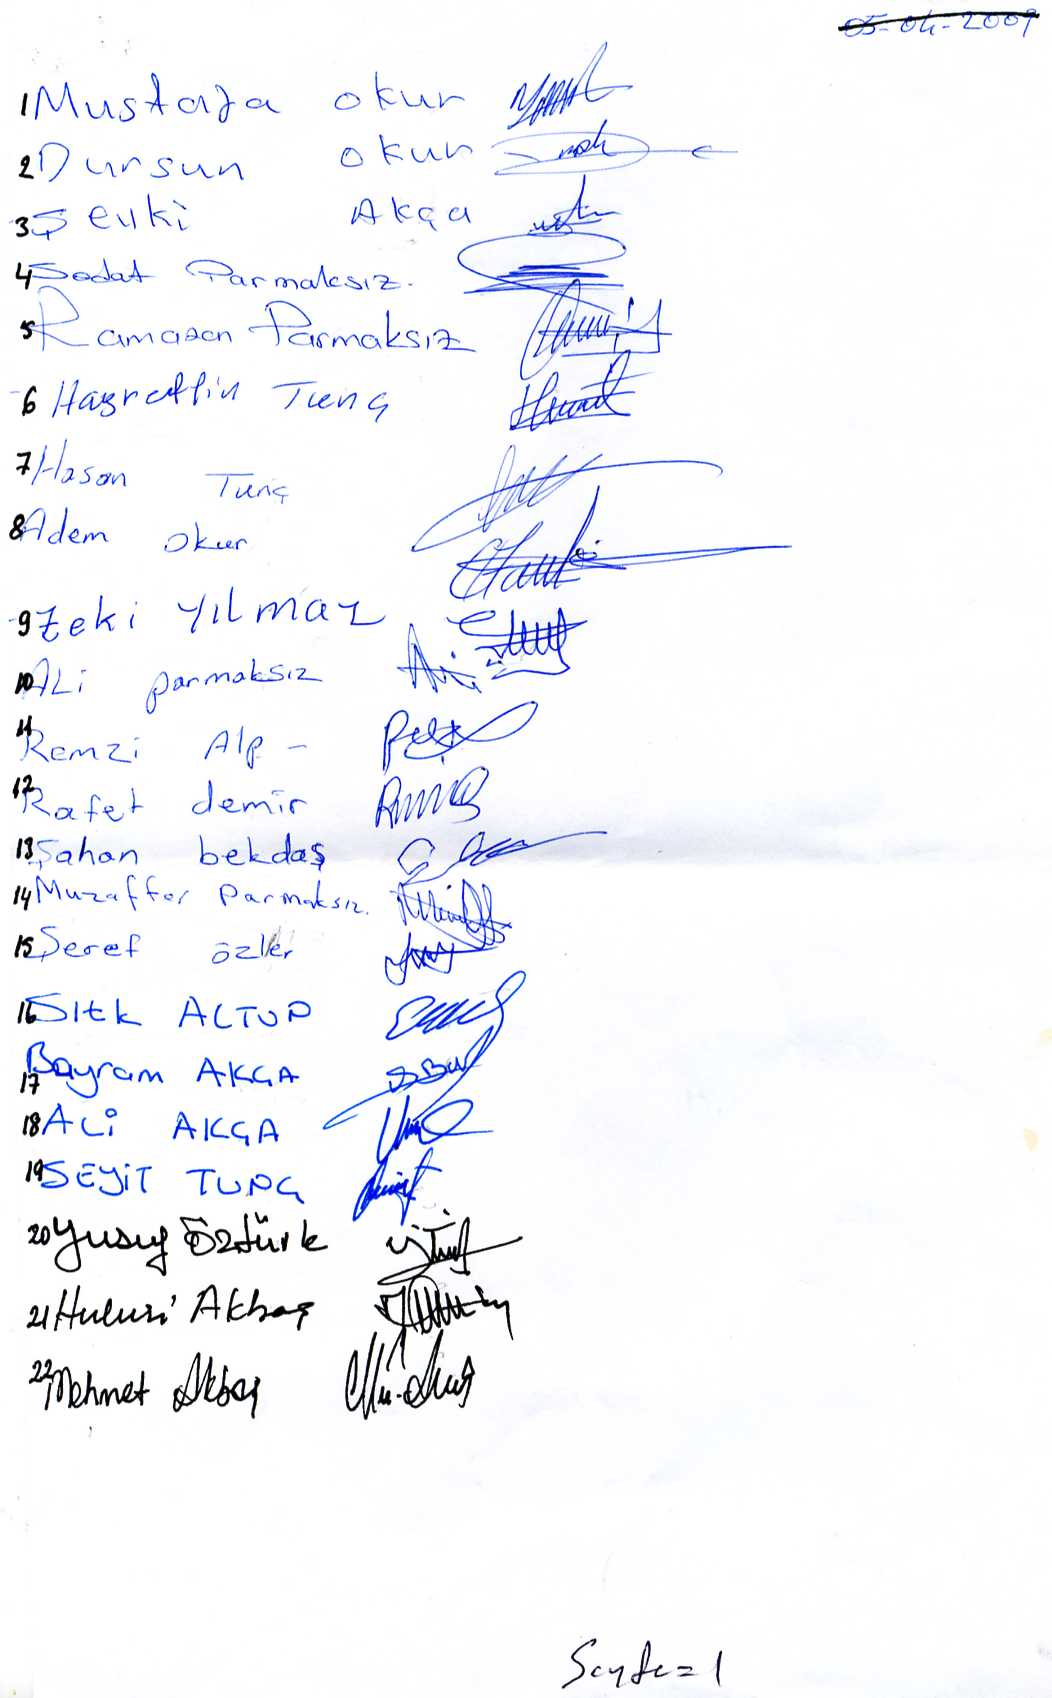 05-04-2009
1 Mustafa okur
2 Dursun okur
3 Şevki Akça
4 Sedat Parmaksız.
5 Ramazan Parmaksız
6 Hayrettin Tunç
7 Hasan Tunç
8 Adem okur
9 Zeki YILMAZ
10 ALi parmaksız
11 Remzi Alp -
12 Rafet demir
13 Şahan bekdaş
14 Muzaffer Parmaksız.
15 Şeref özler
16 Sıtk ALTUP
17 Bayram AKÇA
18 ALi AKÇA
19 SEYiT TUNÇ
20 Yusuf Öztürk
21 Hulusi Akbaş
22 Mehmet Akbaş
Sayfa=1